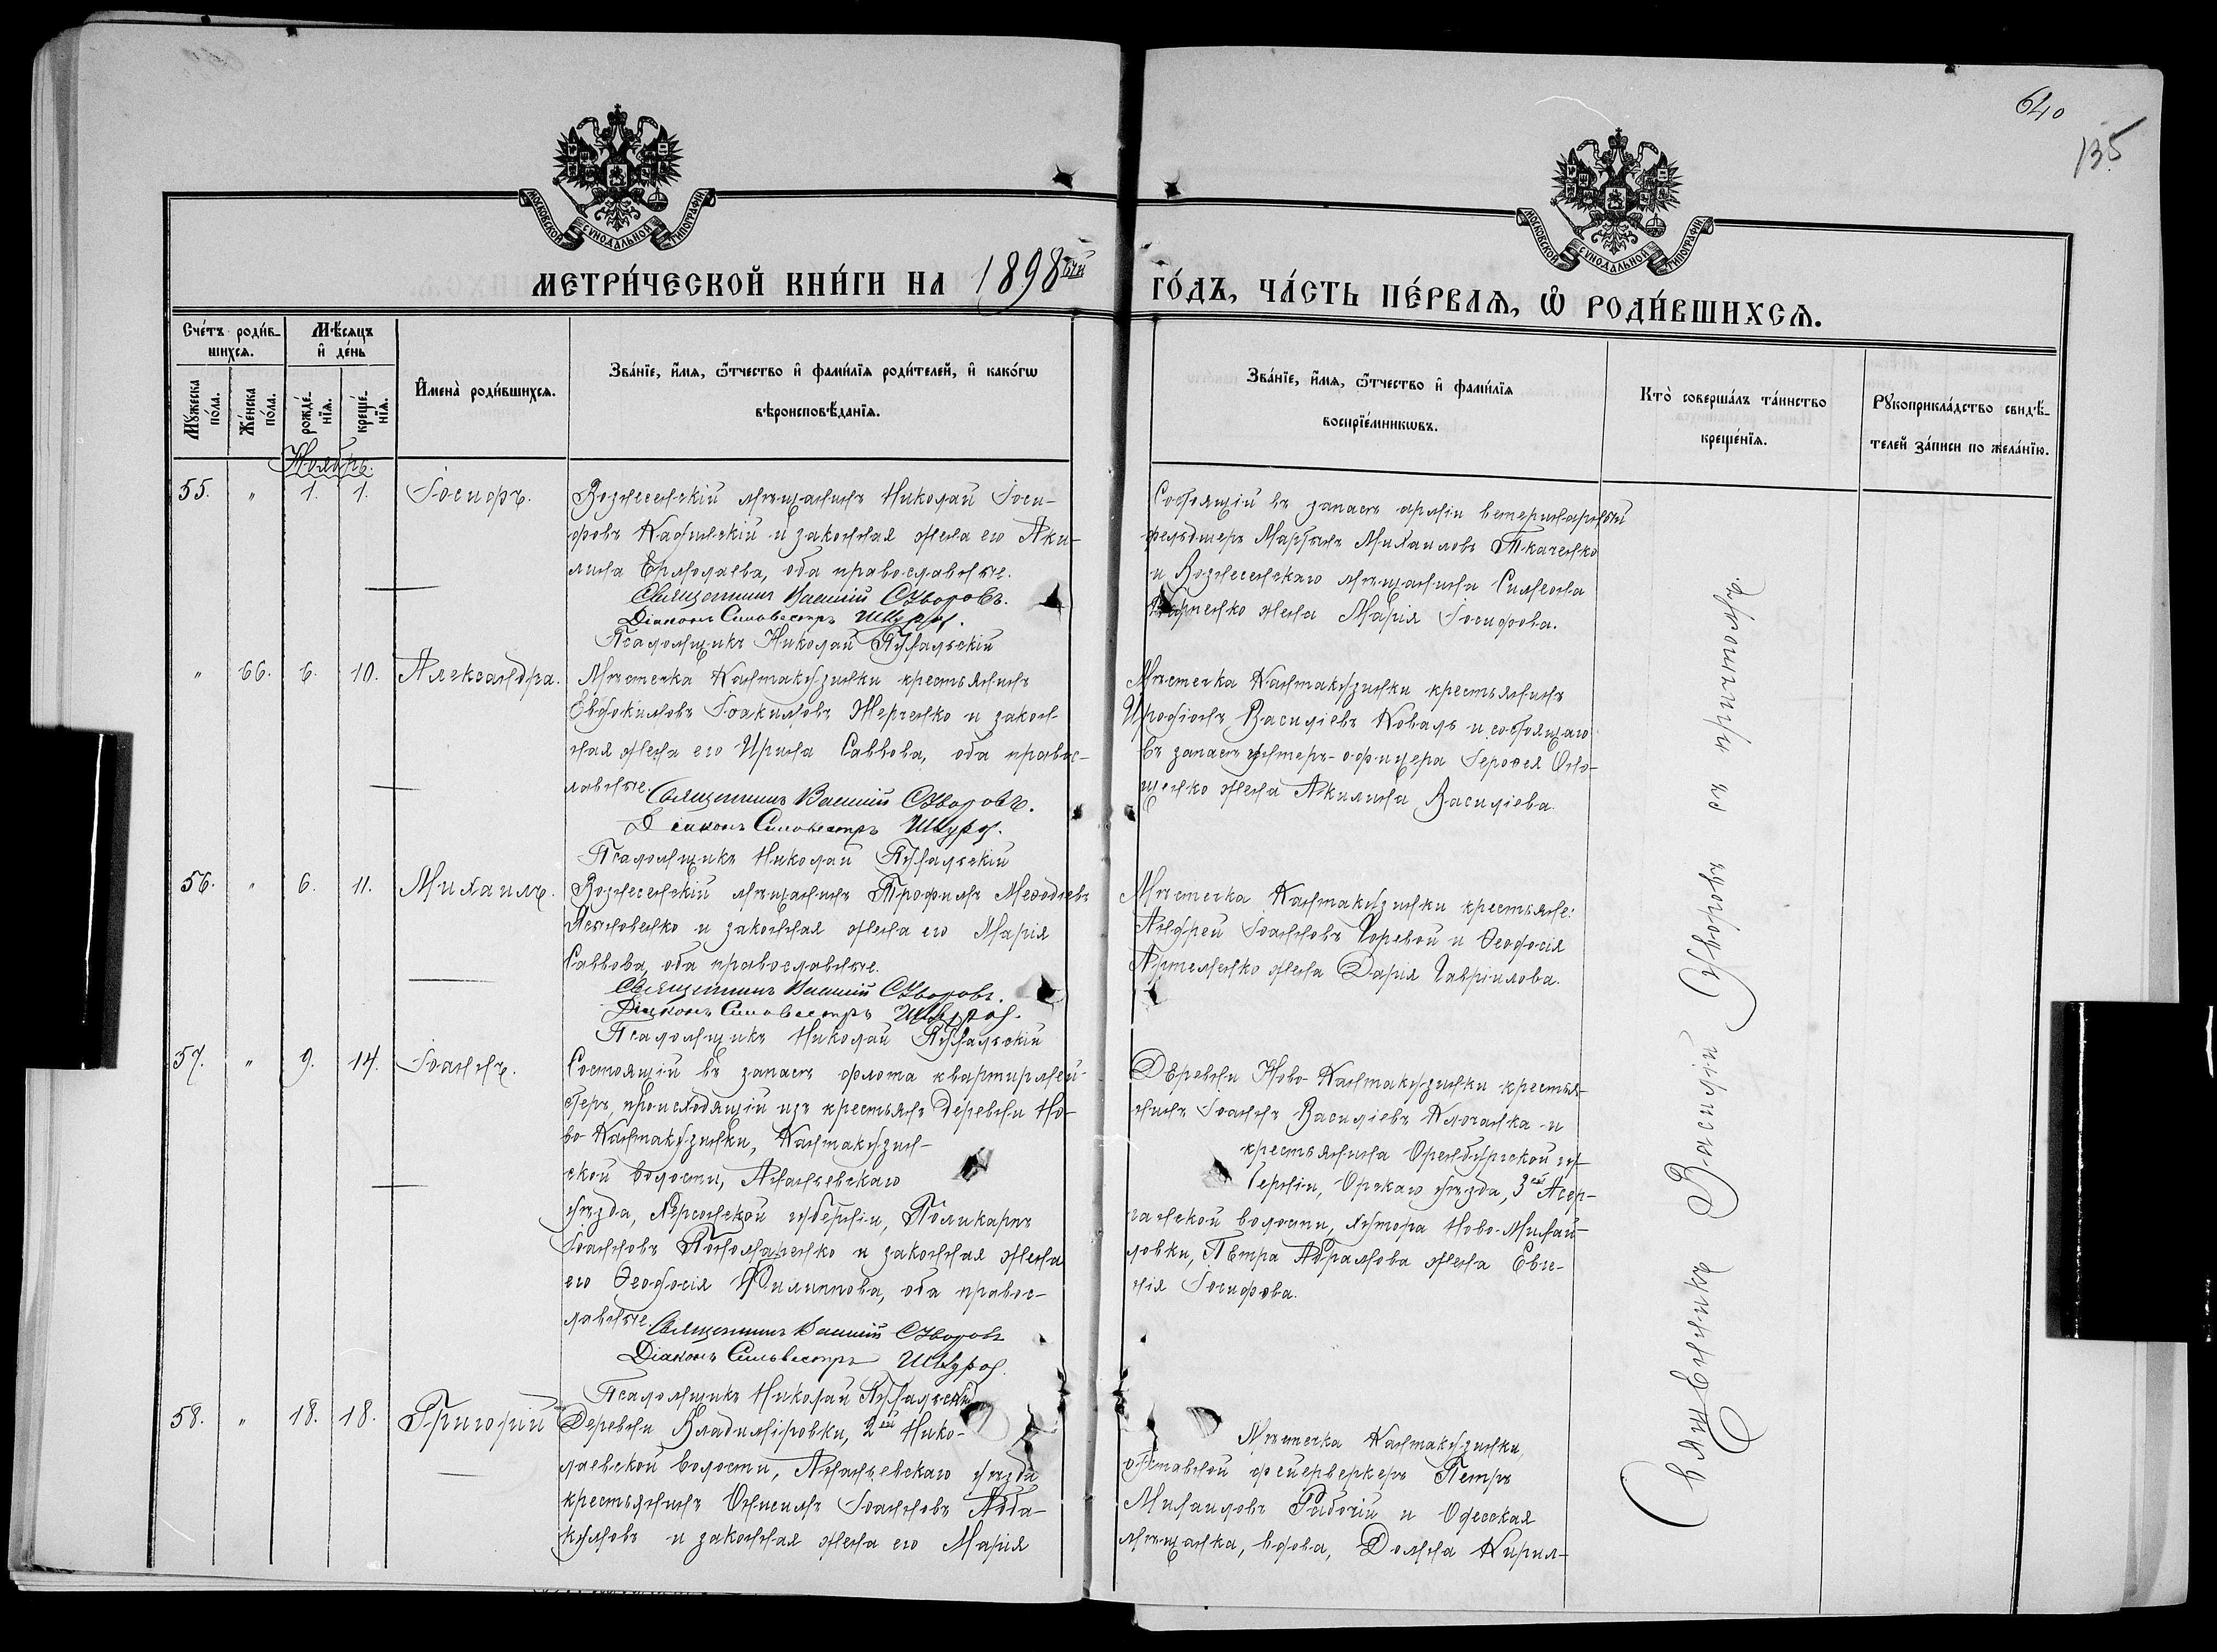 640
135
МОСКОВСКОЙ СѴНОДАЛЬНОЙ ТИПОГРАФІИ
МОСКОВСКОЙ СѴНОДАЛЬНОЙ ТИПОГРАФІИ
МЕТРИ́ЧЕСКОЙ КНИ́ГИ НА 1898ый ГО́ДЪ, ЧА́СТЬ ПЕ́РВАѦ, Ѡ РОДИ́ВШИХСѦ.
Сче́тъ роди́в-
шихсѧ.
Мꙋжеска по́ла.
Же́нска по́ла.
Мѣ́сѧцъ
и҆ де́нь
рожде́-
нїѧ.
креще́-
нїѧ.
И҆мена̀ роди́вшихсѧ.
Зва́нїе, и҆́мѧ, ѻ҆́тчество и҆ фами́лїѧ роди́телей, и҆ како́гѡ
вѣроисповѣ́данїѧ.
Зва́нїе, и҆́мѧ, ѻ҆́тчество и҆ фами́лїѧ
воспрїе́мникѡвъ.
Кто̀ соверша́лъ та́инство
креще́нїѧ.
Рꙋкоприкла́дство свидѣ́-
телей за́писи по жела́нїю.
Ноябрь.
55. " 1. 1. Іосифъ.
Вознесенскій мѣщанинъ Николай Іоси-
фовъ Кафинскій и законная жена его Аки-
лина Ермолаева, оба православные.
Священникъ Василій Суворовъ.
Діаконъ Сильвестръ
Псаломщикъ Николай
Состоящій въ запасѣ арміи ветеринарный
фельдшеръ Мартинъ Михаиловъ Ткаченко
и Вознесенскаго мѣщанина Симеона
жена Марія Іосифова.
" 66. 6. 10. Александра.
Мѣстечка Кантакузинки крестьянинъ
Евдокимовъ Іоакимовъ Жерченко и закон-
ная жена его Ирина Саввова, оба правос-
лавные.
Священникъ Василій Суворовъ.
Діаконъ Сильвестръ
Псаломщикъ Николай
Мѣстечка Кантакузинки крестьянинъ
Иродіонъ Василіевъ Коваль и состоящаго
въ запасѣ унтеръ-офицера Іероѳея Оно-
щенко жена Акилина Василіева.
56. " 6. 11. Михаилъ.
Вознесенскій мѣщанинъ Трофимъ Меѳодіевъ
и законная жена его Марія
Саввова, оба православные.
Священникъ Василій Суворовъ.
Діаконъ Сильвестръ
Псаломщикъ Николай
Мѣстечка Кантакузинки крестьяне:
Андрей Іоанновъ Горевой и Ѳеодосія
Артеменко жена Дарія Гавріилова.
57. " 9. 14. Іоаннъ.
Состоящій въ запасѣ флота квартирмей-
стеръ, происходящій изъ крестьянъ деревни Но-
во-Кантакузинки, Кантакузин-
ской волости, Ананьевскаго
уѣзда, Херсонской губерніи, Поликарпъ
Іоанновъ Пономаренко и законная жена
его Ѳеодосія Филиппова, оба правос-
лавные.
Священникъ Василій Суворовъ
Діаконъ Сильвестръ
Псаломщикъ Николай
Деревни Ново-Кантакузинки крестья-
нинъ Іоаннъ Василіевъ Клочанка и
крестьянина Оренбургской гу-
берніи, Орскаго уѣзда, 3ей Асер-
ганской волости, хутора Ново-Михай-
ловки, Петра Абрамова жена Евге-
нія Іосифова.
58. " 18. 18. Григорій
Деревни Владиміровки, 2ой Нико-
лаевской волости, Ананьевскаго уѣзда
крестьянинъ Онисимъ Іоанновъ Абба-
кумовъ и законная жена его Марія
Мѣстечка Кантакузинки,
отставной фейерверкеръ Петръ
Михаиловъ Рабочій и Одесская
мѣщанка, вдова, Домна Кирил-
Священникъ Василій Суворовъ съ причтомъ.